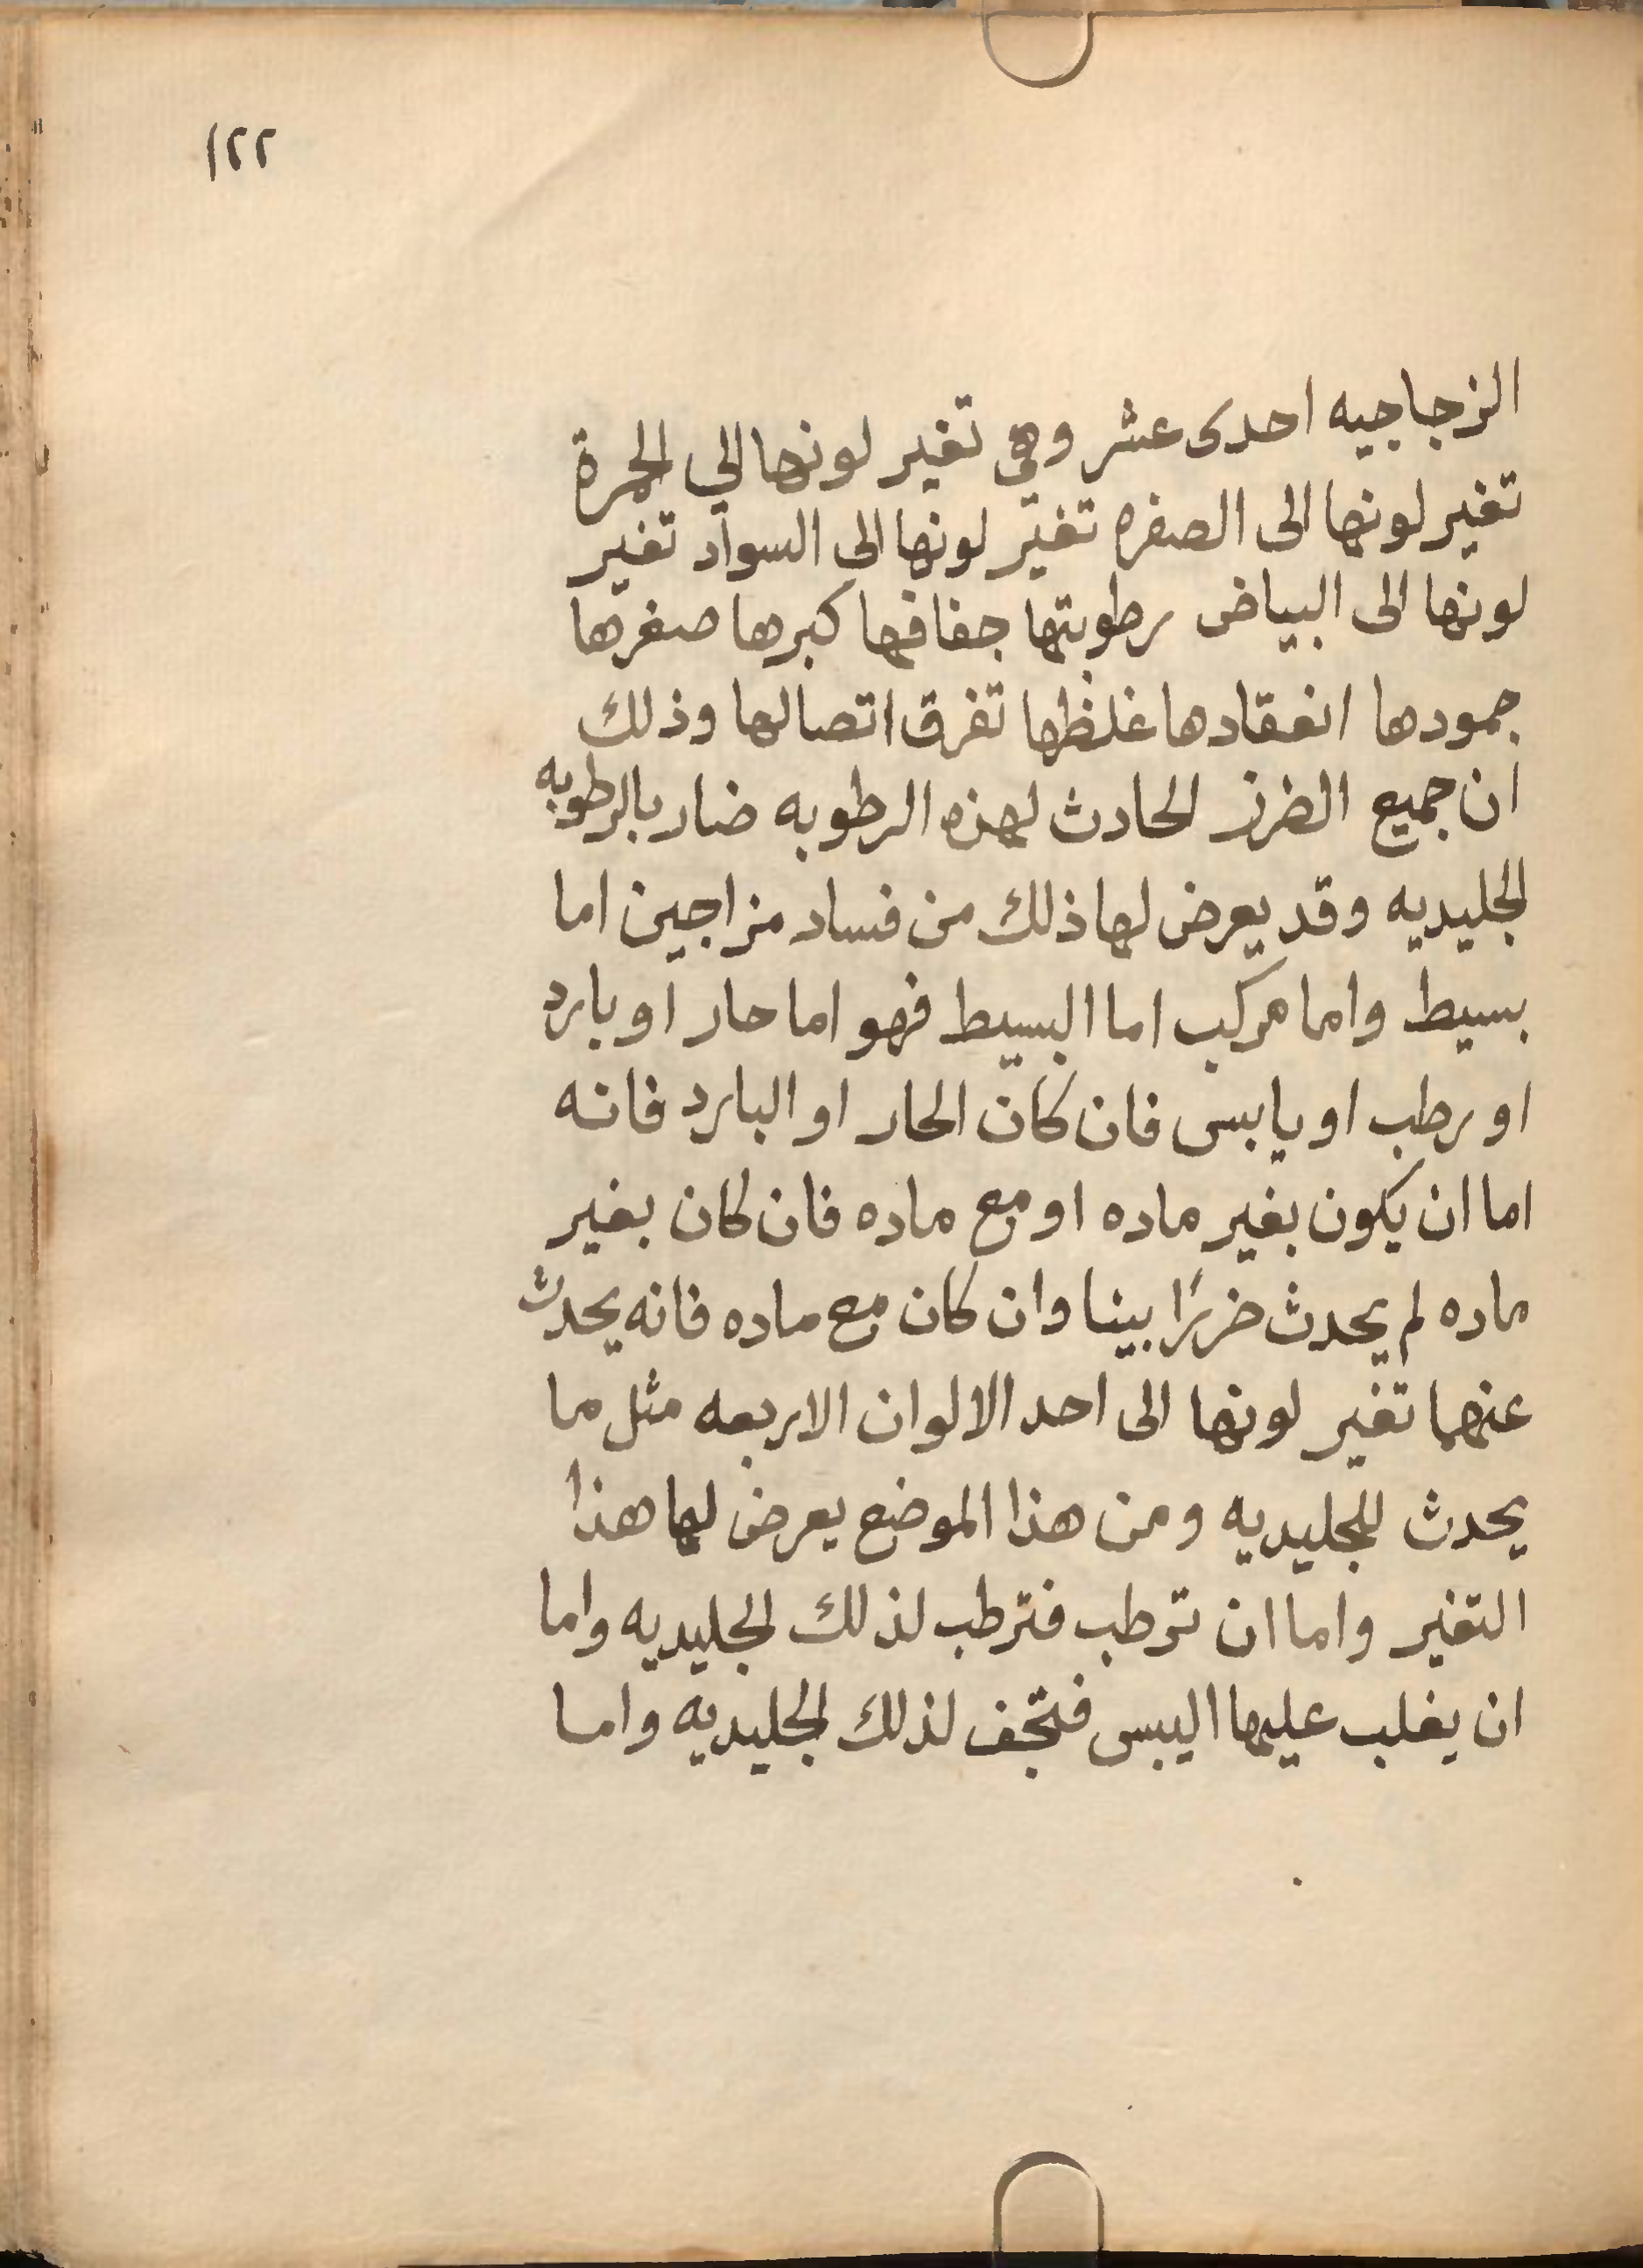 ١٢٢
الزجاجيه احدى عشر وهي تغير لونها الي الحمرة
تغير لونها الى الصفره تغير لونها الى السواد تغير
لونها الى البياض رطوبتها جفافها كبرها صغرها
جمودها انعقادها غلظها تفرق اتصالها وذلك
ان جميع الضرر الحادث لهذه الرطوبه ضار بالرطوبه
الجليديه وقد يعرض لها ذلك من فساد مزاجين اما
بسيط واما مركب اما البسيط فهو اما حار او بارد
او رطب او يابس فان كان الحار او البارد فانه
اما ان يكون بغير ماده او مع ماده فان كان بغير
ماده لم يحدث ضررًا بينا وان كان مع ماده فانه يحدث
عنهما تغير لونها الى احد الالوان الاربعه مثل ما
يحدث للجليديه ومن هذا الموضع يعرض لها هذا
التغير واما ان ترطب فترطب لذلك الجليديه واما
ان يغلب عليها اليبس فتجف لذلك الجليديه واما